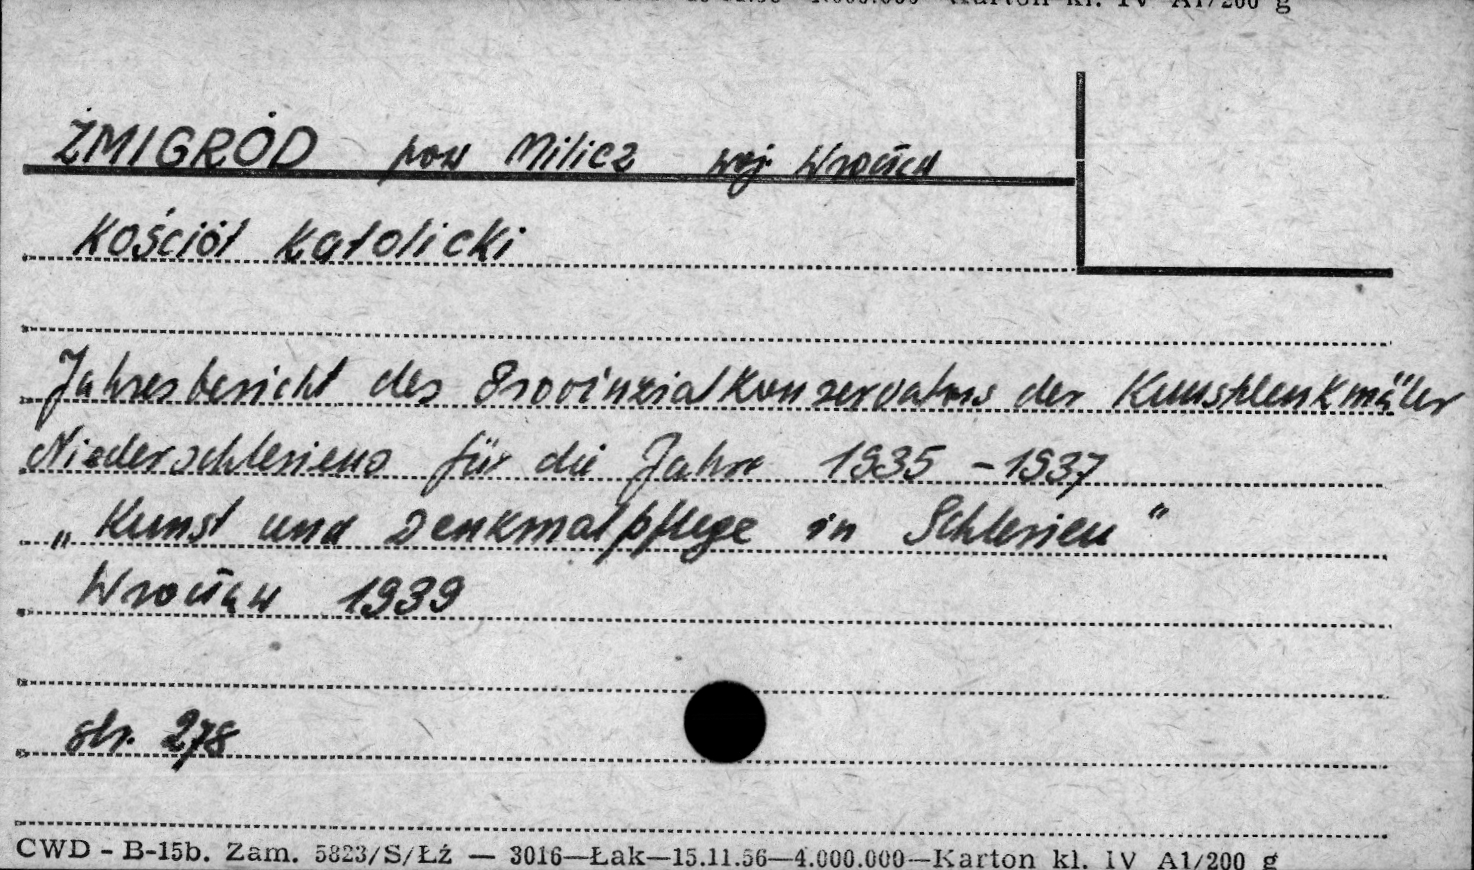 Karton kl. IV A1/200 g
ŻMIGRÓD pow Milicz woj. Wrocław
Kościół katolicki
Jahresbericht des Provinzialkonservators der Kunstdenkmäler
Niederschlesiens für die Jahre 1935 - 1937
„Kunst und Denkmalpflege in Schlesien"
Wrocław 1939
str. 278
CWD - B-15b. Zam. 5823/S/Łź — 3016—Łak—15.11.56—4.000.000—Karton kl. IV A1/200 g